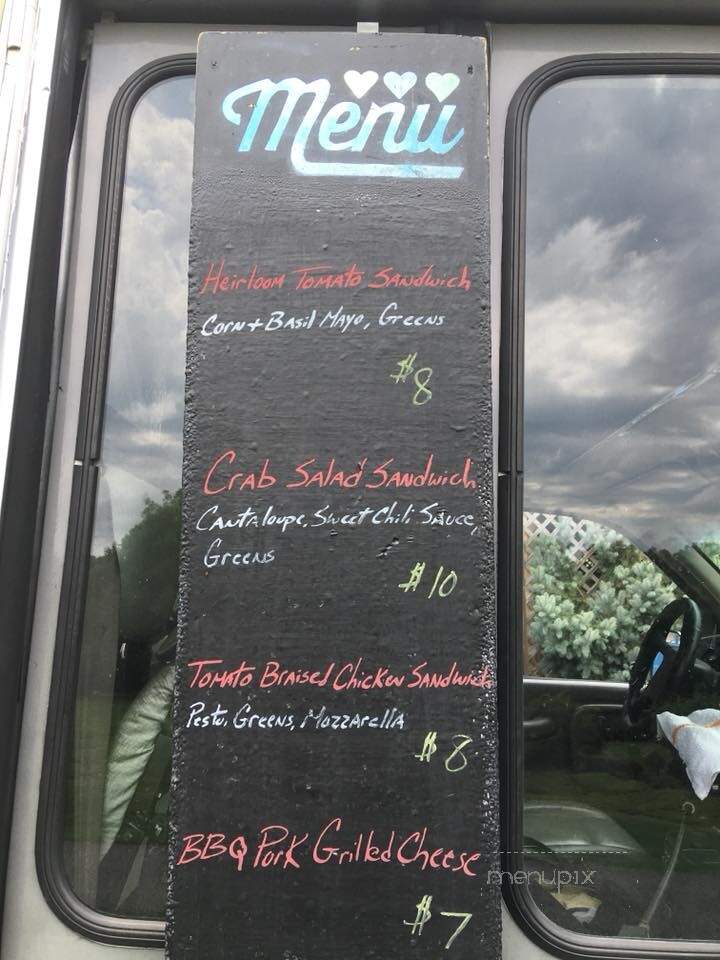 Menu
Heirloom Tomato Sandwich
Corn + Basil Mayo, Greens
$8
Crab Salad Sandwich
Cantaloupe, Sweet Chili Sauce,
Greens
$10
Tomato Braised Chicken Sandwich
Pesto, Greens, Mozzarella
$8
BBQ Pork Grilled Cheese
menupix
$7